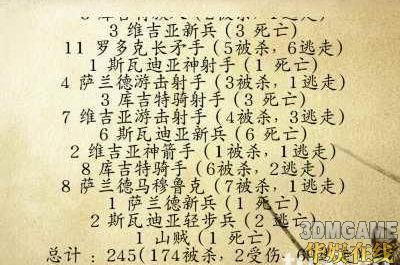 3 维吉亚新兵(3 死亡)
11 罗多克长矛手(5被杀,6逃走)
1 斯瓦迪亚神射手(1 死亡)
4 萨兰德游击射手(3被杀,1逃走)
3 库吉特骑射手(3 死亡)
7 维吉亚游击射手(4被杀,3逃走)
6 斯瓦迪亚新兵(6 死亡)
2 维吉亚神箭手(1被杀,1逃走)
8 库吉特骑手(6被杀,2逃走)
8 萨兰德马穆鲁克(7被杀,1逃走)
1 萨兰德新兵(1 死亡)
2 斯瓦迪亚轻步兵(2 逃亡)
1 山贼(1 死亡)
总计:245(174被杀,2受伤,6
3DMGAME
华娱在线